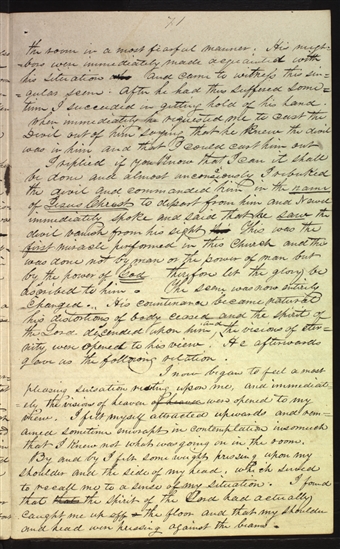 71
the room in a most fearful manner. His neigh-
bors were immediately made acquainted with
his situation and came to witness this sin-
gular scene. After he had thus suffered some-
time I succeeded in getting hold of his hand.
when immediately he requested me to cast the
Devil out of him saying that he knew the devil
was in him and that I could cast him out
I replied if you know that I can it shall
be done and almost unconsciously I rebuked
the devil and commanded him in the name
of Jesus Christ to depart from him and Newel
immediately spoke and said that he saw the
devil vanish from his sight This was the
first miracle performed in this Church and this
was done not by man or the power of man but
by the power of God therefore let the glory be
ascribed to him. The scene was now entirely
changed. His countenance became natural
his distortions of body ceased and the spirit of
the Lord descended upon him and the visions of eter-
nity were opened to his view. He afterwards
gave us the following relation.
I now began to feel a most
pleasing sensation resting upon me, and immediat-
ely the visions of heaven were opened to my
view. I felt myself attracted upwards and rem-
ained sometime enwrapt in contemplation insomuch
that I knew not what was going on in the room.
By and by I felt some weight pressing upon my
shoulder and the side of my head, which served
to recall me to a sense of my situation. I found
that the spirit of the Lord had actually
caught me up off the floor and that my shoulder
and head were pressing against the beams.